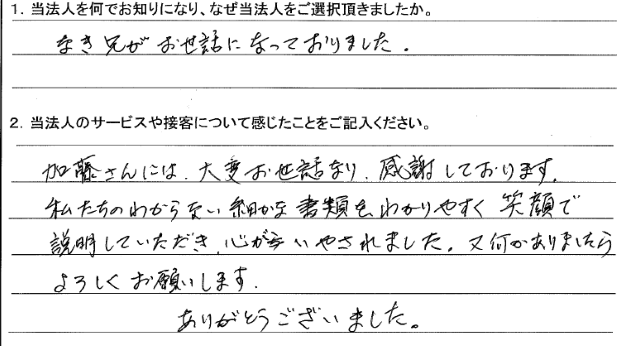 1. 当法人を何でお知りになり、なぜ当法人をご選択頂きましたか。
なき兄がお世話になっておりました。
2. 当法人のサービスや接客について感じたことをご記入ください。
加藤さんには、大変お世話なり、感謝しております。
私たちのわからない細かな書類をわかりやすく笑顔で
説明していただき、心がいやされました。又何かありましたら
よろしくお願いします。
ありがとうございました。